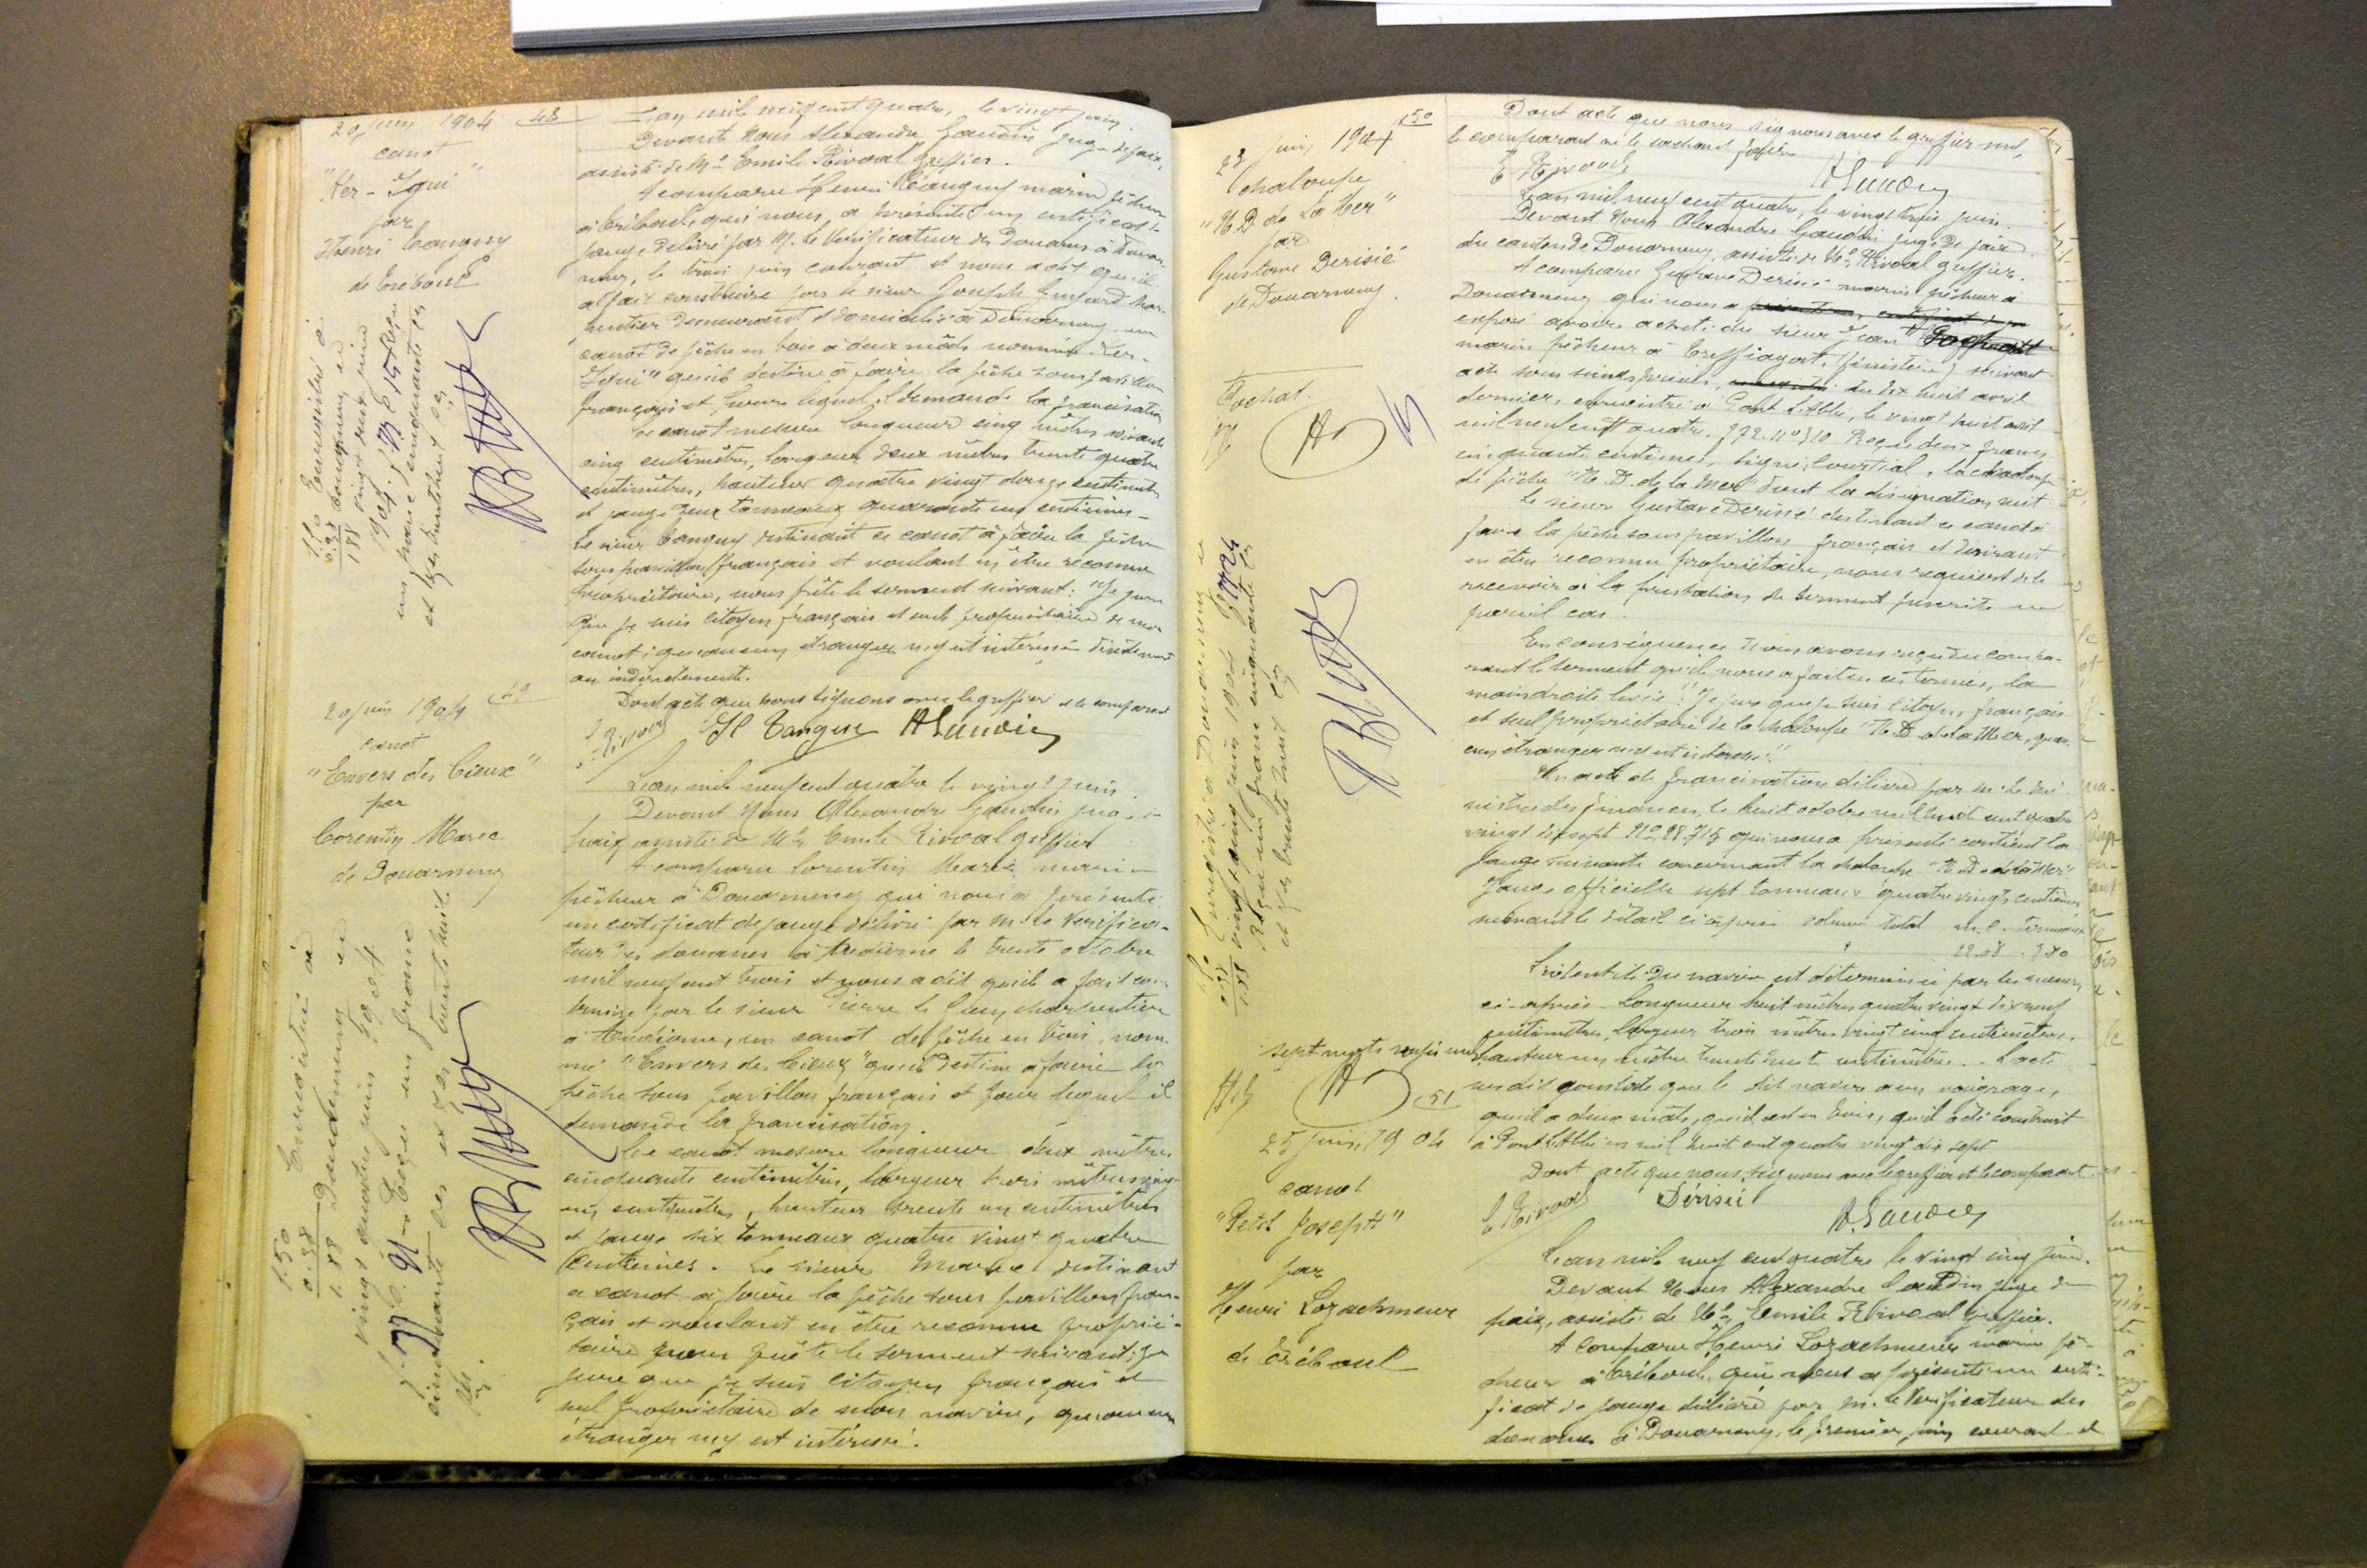 20 juin 1904 48
canot
"Ker-Izqui"
par
Henri Tanguy
de Tréboul
Enregistré à
Douarnenez le
vingt deux juin
1904, f° 73 C. 15 Reçu
un franc cinquante ces
et ces trente huit ces
1.50
0.38
1.88
L'an mil neuf cent quatre, le vingt juin.
Devant Nous Alexandre Gaudin juge de paix,
assisté de Me Emile Rivoal greffier.
A comparu Henri Tanguy marin pêcheur
à Tréboul, qui nous a présenté un certificat de
jauge délivré par M. le Vérificateur des Douanes à Douar-
nenez, le trois juin courant et nous a dit qu'il
a fait construire par le sieur Joseph char-
pentier demeurant et domicilié à Douarnenez un
canot de pêche en bois à deux mâts nommé "Ker-
Izqui" qu'il destine à faire la pêche sous pavillon
français et pour lequel il demande la francisation.
Ce canot mesure longueur cinq mètres soixante
cinq centimètres, largeur deux mètres trente quatre
centimètres, hauteur quatre vingt douze centimètres
et jauge deux tonneaux quarante un centièmes.
Le sieur Tanguy destinant ce canot à faire la pêche
sous pavillon français et voulant en être reconnu
propriétaire, nous prête le serment suivant: "Je jure
que je suis citoyen français et seul propriétaire de mon
canot, qu'aucun étranger n'y est intéressé directement
ou indirectement.
Dont acte que nous signons avec le greffier et le comparant
E Rivoal H Tanguy AGaudin
20 juin 1904 49
canot
"Envers des Cieux"
par
Corentin Marec
de Douarnenez
Enregistré à
Douarnenez le
vingt quatre juin 1904
f° 73 C. 91 - Reçu un franc
cinquante ces et ces trente huit
ces.
1.50
0.38
1.88
L'an mil neuf cent quatre le vingt juin.
Devant Nous Alexandre Gaudin juge de
paix, assisté de Me Emile Rivoal greffier
A comparu Corentin Marec marin
pêcheur à Douarnenez qui nous a présenté
un certificat de jauge délivré par M. le Vérifica-
teur des douanes à Audierne le trente octobre
mil neuf cent trois et nous a dit qu'il a fait cons-
truire par le sieur Pierre le charpentier
à Audierne, un canot de pêche en bois, nom-
mé "Envers des Cieux" qu'il destine à faire la
pêche sous pavillon français et pour lequel il
demande la francisation.
Ce canot mesure longueur deux mètres
cinquante centimètres, largeur trois mètres vingt
un centimètres, hauteur trente un centimètres
et jauge six tonneaux quatre vingt quatre
centièmes. Le sieur Marec destinant
ce canot à faire la pêche sous pavillon fran-
çais et voulant en être reconnu proprié-
taire nous prête le serment suivant: Je
jure que je suis citoyen français et
seul propriétaire de mon navire, qu'aucun
étranger n'y est intéressé.
Dont acte que nous signons avec le greffier seul,
le comparant ne le sachant faire
E Rivoal AGaudin
23 juin 1904 50
chaloupe
"N.D de la Mer"
par
Gustave Dérisié
de Douarnenez.
Enregistré à Douarnenez le
vingt cinq juin 1904
Reçu un franc cinquante ces
et ces trente huit ces
1.50
0.38
1.88
L'an mil neuf cent quatre, le vingt trois juin.
Devant Nous Alexandre Gaudin juge de paix
du canton de Douarnenez, assisté de Me Rivoal greffier.
A comparu Gustave Dérisié marin pêcheur à
Douarnenez qui nous a
exposé avoir acheté du sieur Jean
marin pêcheur à Treffiagat, (Finistère) suivant
acte sous seings privés, du dix huit avril
dernier, enregistré à Pont-l'Abbé, le vingt huit avril
mil neuf cent quatre. f 72 n° 310 Reçu deux francs
cinquante centimes, signé: Courtial, la chaloupe
de pêche "N.D. de la Mer" dont la désignation suit
Le sieur Gustave Dérisié destinant ce canot à
faire la pêche sous pavillon français et désirant
en être reconnu propriétaire, nous requiert de le
recevoir à la prestation de serment prescrite en
pareil cas.
En conséquence nous avons reçu du compa-
rant le serment qu'il nous a fait en ces termes, la
main droite levée: "Je jure que je suis citoyen français
et seul propriétaire de la chaloupe "N.D de la Mer, qu'au-
cun étranger n'y est intéressé."
Un acte de francisation délivré par M. le Mi-
nistre des finances, le huit octobre mil huit cent quatre
vingt dix sept N° qui nous a présenté contient la
jauge suivante concernant la chaloupe "N.D de la Mer":
Jauge officielle sept tonneaux quatre vingts centièmes
suivant le détail ci après volume total m.c. tonneaux
22.08 7.80
L'identité du navire est déterminée par les mesures
ci-après. Longueur huit mètres quatre vingt dix neuf
centimètres, largeur trois mètres vingt cinq centimètres,
hauteur un mètre trente huit centimètres. L'acte
sus dit constate que le dit navire a un vaigrage,
qu'il a deux mâts, qu'il est en bois, qu'il a été construit
à Pont-l'Abbé en mil huit cent quatre vingt dix sept
Dont acte que nous signons avec le greffier et le comparant.
E Rivoal Dérisié A.Gaudin
sept mots rayés nuls
51
25 juin 1904
canot
"Petit Joseph"
par
Henri Lozachmeur
de Tréboul
L'an mil neuf cent quatre le vingt cinq juin.
Devant Nous Alexandre Gaudin juge de
paix, assisté de Me Emile Rivoal greffier.
A comparu Henri Lozachmeur marin pê-
cheur à Tréboul, qui nous a présenté un certi-
ficat de jauge délivré par M. le Vérificateur des
douanes à Douarnenez, le premier juin courant et